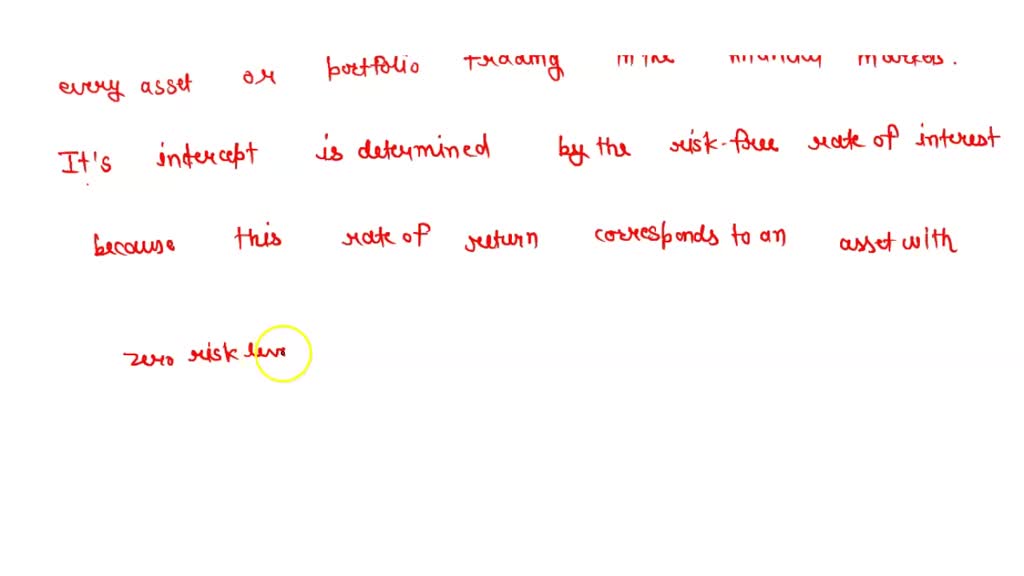 every asset or portfolio trading in the markets.
It's intercept is determined by the risk-free rate of interest
because this rate of return corresponds to an asset with
zero risk leve